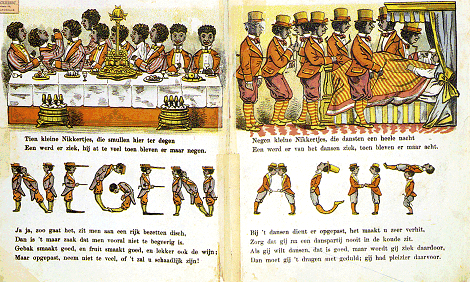 Tien kleine Nikkertjes, die smullen hier ter degen
Een werd er ziek, hij at te veel toen bleven er maar negen.
NEGEN
Ja ja, zoo gaat het, zit men aan een rijk bezetten disch,
Dan is 't maar zaak dat men vooral niet te begeerig is.
Gebak smaakt goed, en fruit smaakt goed, en lekker ook de wijn;
Maar opgepast, neem niet te veel, of 't zal u schadelijk zijn!
Negen kleine Nikkertjes, die dansten een heele nacht
Een werd er van het dansen ziek, toen bleven er maar acht.
ACHT
Bij 't dansen dient er opgepast, het maakt u zeer verhit,
Zorg dat gij na een danspartij nooit in de koude zit.
Als gij wilt dansen, dat is goed, maar wordt gij ziek daardoor,
Dan moet gij 't dragen met geduld; gij had pleizier daarvoor.